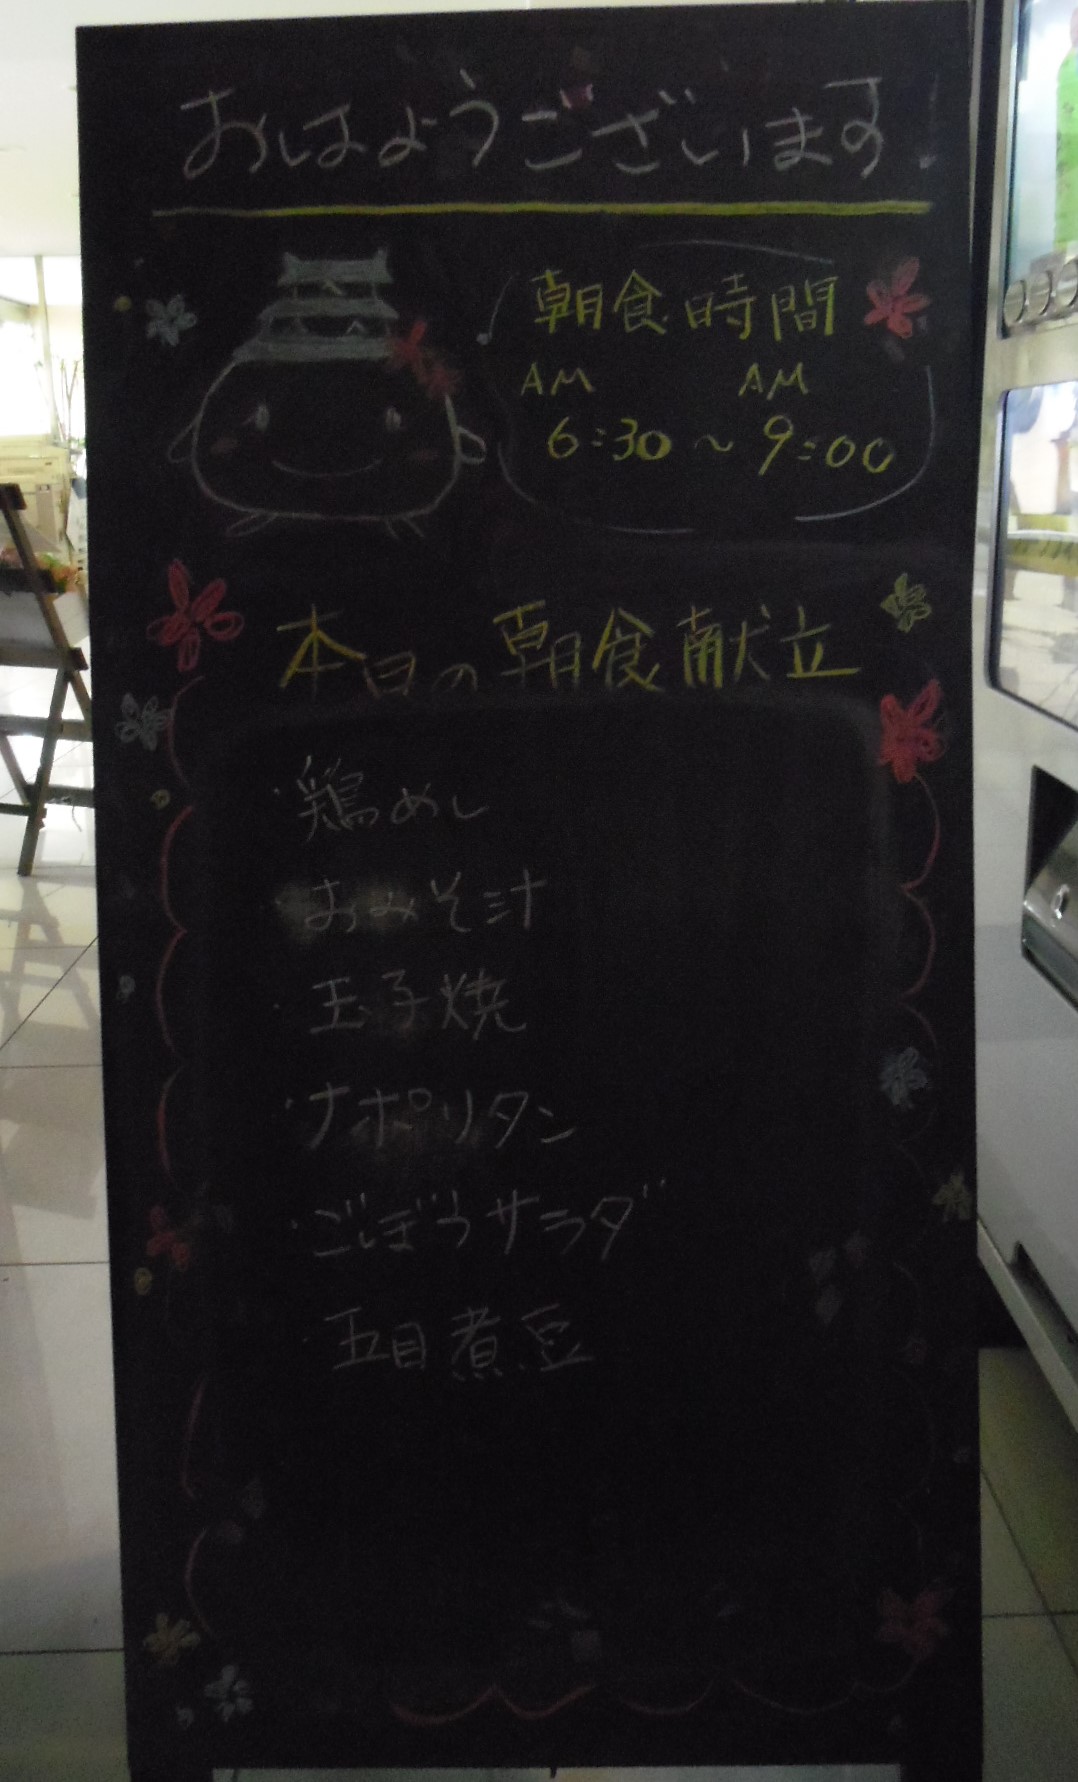 おはようございます!
朝食時間
AM AM
6:30～9:00
本日の朝食献立
・鶏めし
・おみそ汁
・玉子焼
・ナポリタン
・ごぼうサラダ
・五目煮豆